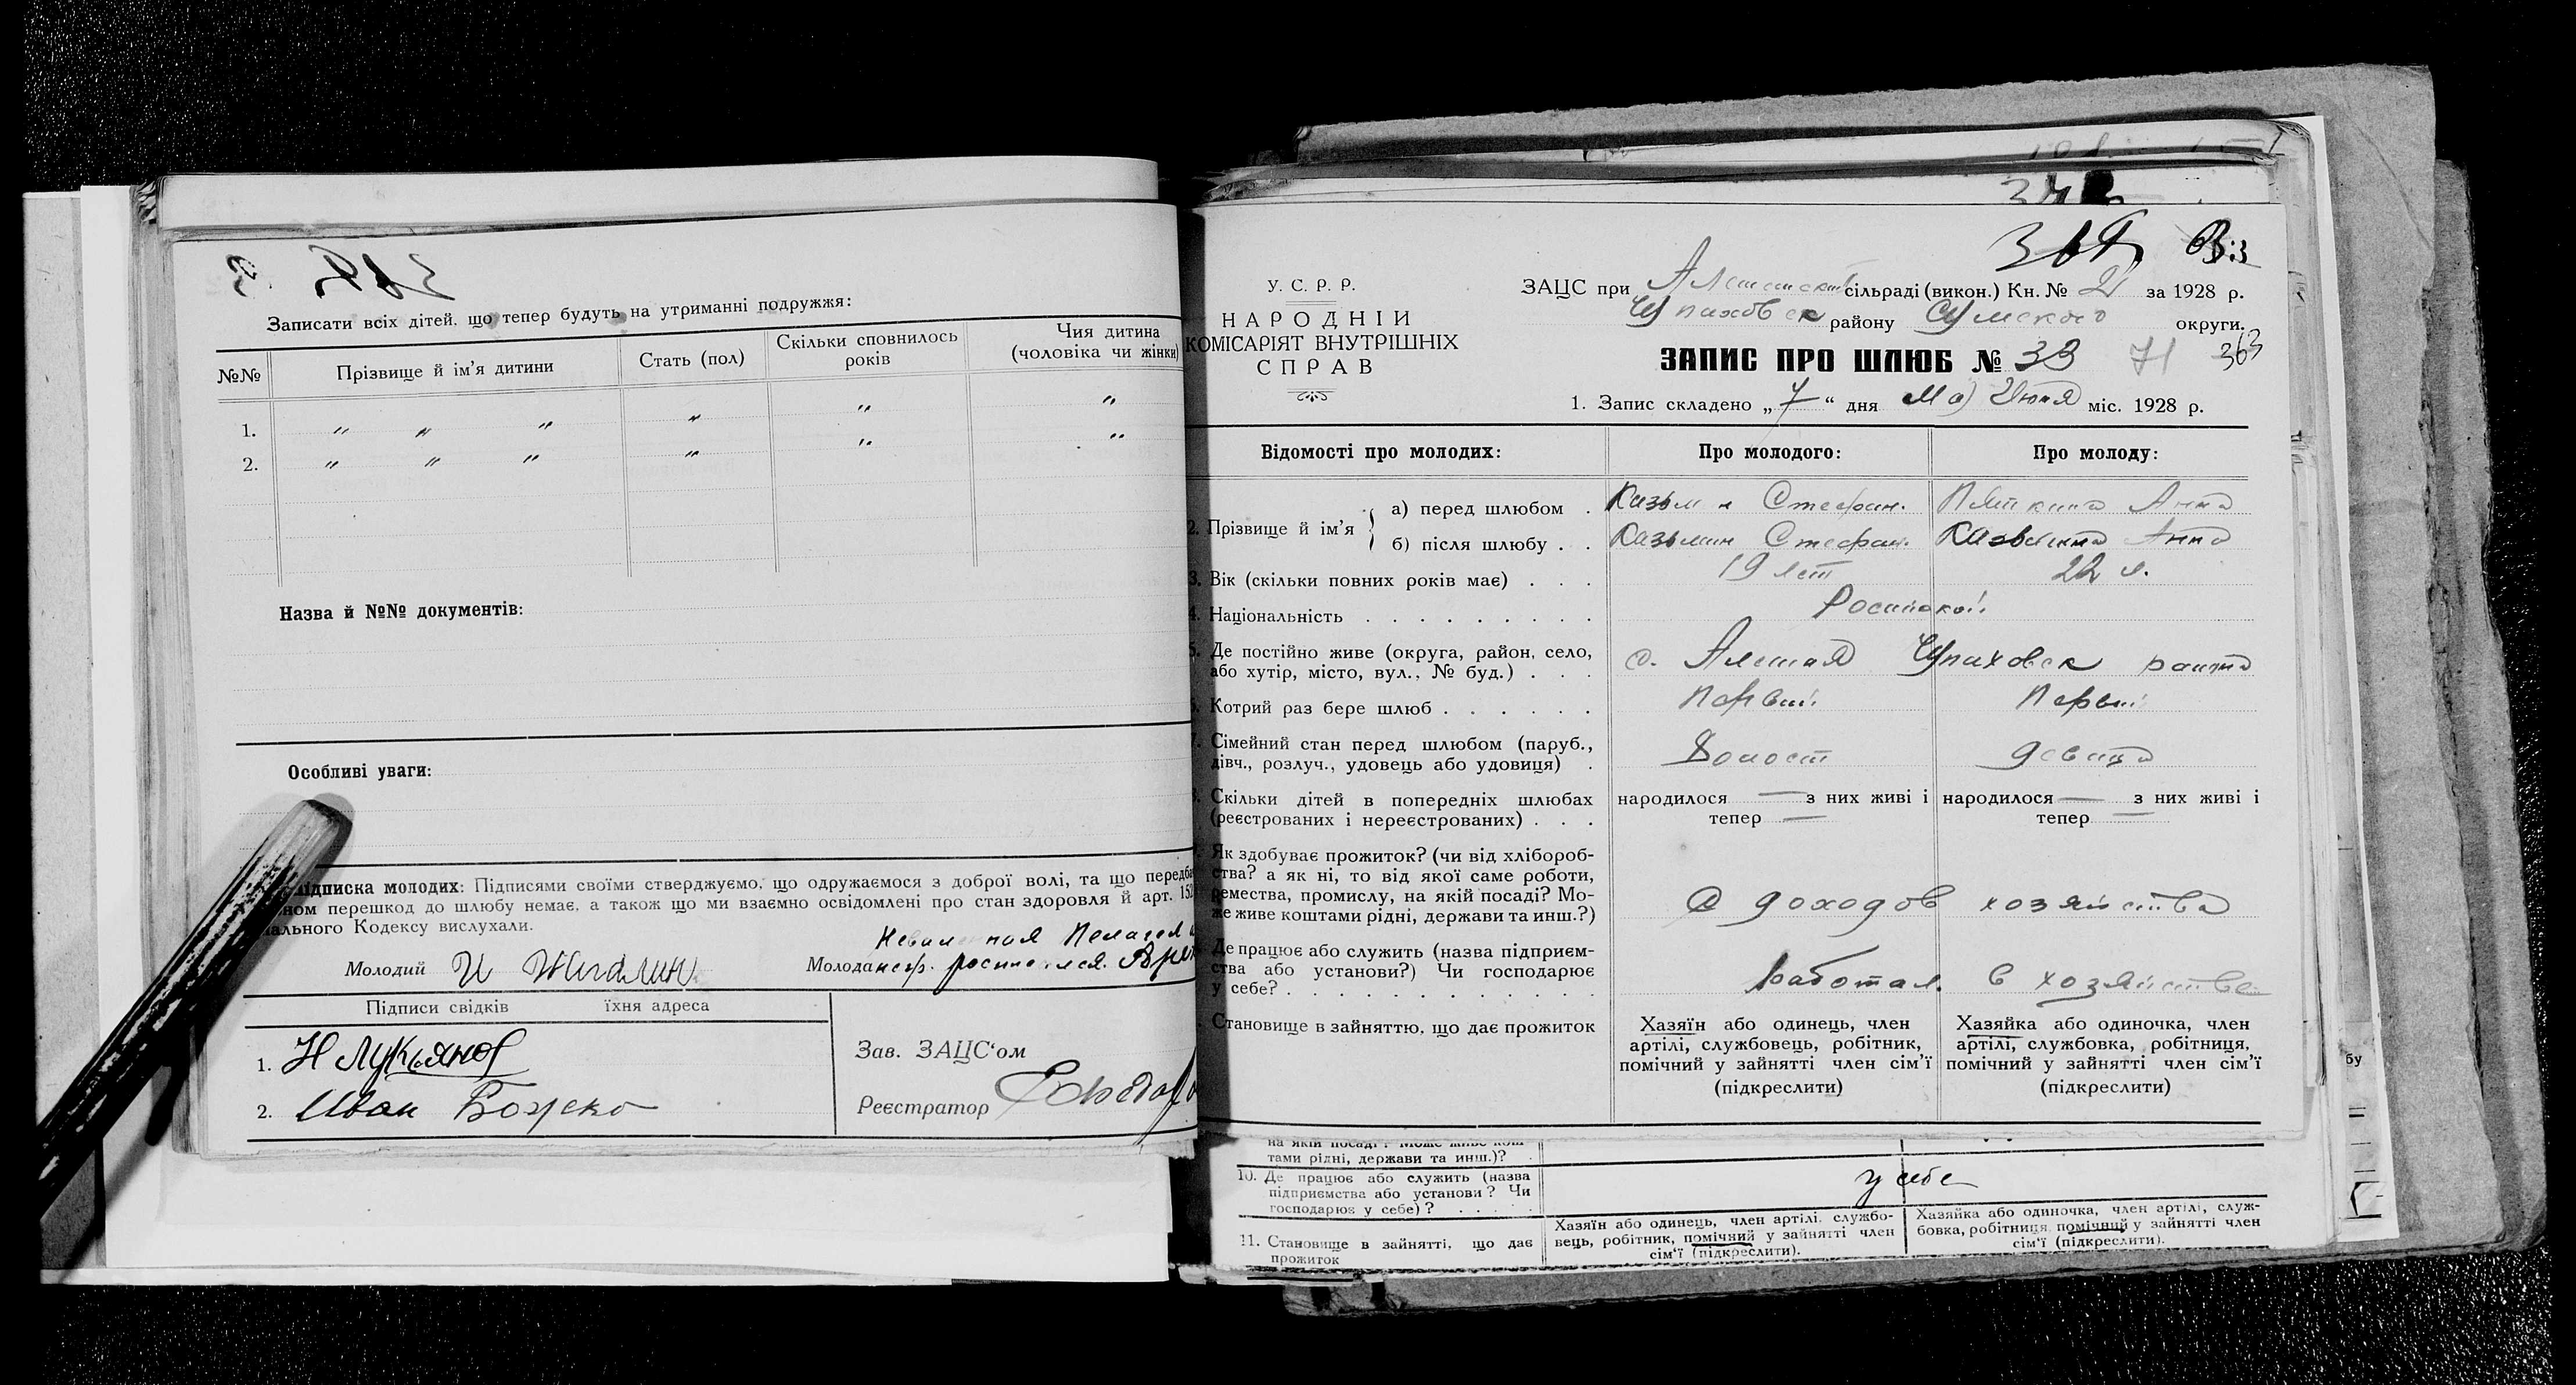 Записати всіх дітей, що тепер будуть на утриманні подружжя:
№№ Прізвище й ім'я дитини Стать (пол) Скільки сповнилось років Чия дитина (чоловіка чи жінки)
1. " " " " " "
2. " " " " " "
Назва й №№ документів:
Особливі уваги:
підписка молодих: Підписями своїми стверджуємо, що одружаємося з доброї волі, та що
перешкод до шлюбу немає, а також що ми взаємно освідомлені про стан здоровля й арт.
Кодексу вислухали.
Молодий И Жигалин Молода
Підписи свідків їхня адреса
1. Н Лукьянов
2. Иван Божско
Зав. ЗАЦС'ом
Реєстратор
У. С. Р. Р.
НАРОДНІЙ
КОМІСАРІЯТ ВНУТРІШНІХ
СПРАВ
ЗАЦС при сільраді (викон.) Кн. № 2 за 1928 р.
району Сумского округи.
363
ЗАПИС ПРО ШЛЮБ № 33 71
1. Запис складено „7“ дня Июня міс. 1928 р.
Відомості про молодих: Про молодого: Про молоду:
2. Прізвище й ім'я
а) перед шлюбом . Казьмин Стефан. Анна
б) після шлюбу . . Казьмин Стефан. Казьмина Анна
3. Вік (скільки повних років має) . . . 19 лет 22 л.
4. Національність . . . . . . . . . Росийской
5. Де постійно живе (округа, район, село, або хутір, місто, вул., № буд.) . . . с. района
6. Котрий раз бере шлюб . . . . . . Первий Первий
7. Сімейний стан перед шлюбом (паруб., дівч., розлуч., удовець або удовиця) . Холост девица
8. Скільки дітей в попередніх шлюбах (реєстрованих і нереєстрованих) . . .
народилося — з них живі і тепер —
народилося — з них живі і тепер —
Як здобуває прожиток? (чи від хлібороб-
ства? а як ні, то від якої саме роботи,
ремества, промислу, на якій посаді? Мо-
же живе коштами рідні, держави та инш.?)
С доходов хозяйства
Де працює або служить (назва підприєм-
ства або установи?) Чи господарює
у себе? . . . . . . . . . . . .
работал. в хозяйстве
Становище в зайняттю, що дає прожиток
Хазяїн або одинець, член артілі, службовець, робітник, помічний у зайнятті член сім'ї (підкреслити)
Хазяйка або одиночка, член артілі, службовка, робітниця, помічний у зайнятті член сім'ї (підкреслити)
тами рідні, держави та инш.)?
10. Де працює або служить (назва
підприємства або установи? Чи
господарює у себе)? . . . . .
у себе
11. Становище в зайнятті, що дає
прожиток
Хазяїн або одинець, член артілі, службо-
вець, робітник, помічний у зайнятті член
сім'ї (підкреслити).
Хазяйка або одиночка, член артілі, служ-
бовка, робітниця, помічний у зайнятті член
сім'ї (підкреслити).